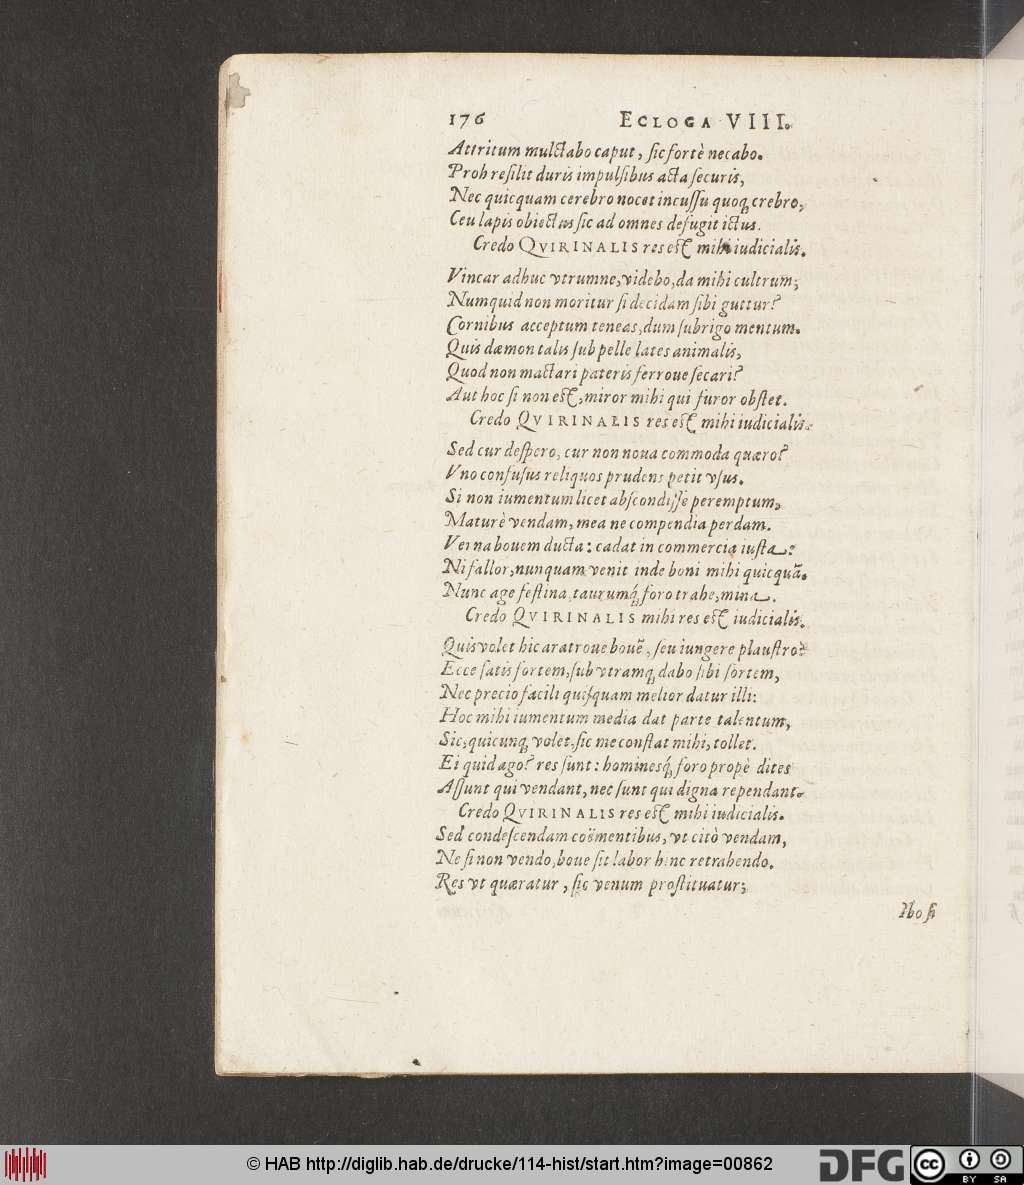 176 ECLOGA VIII.
Attritum mulctabo caput, sic fortè necabo.
Proh resilit duris impulsibus acta securis,
Nec quicquam cerebro nocet incussu quoq; crebro,
Ceu lapis obiectus sic ad omnes defugit ictus.
Credo QVIRINALIS res est mihi iudicialis.
Vincar adhuc vtrumne, videbo, da mihi cultrum;
Numquid non moritur si decidam sibi guttur?
Cornibus acceptum teneas, dum subrigo mentum.
Quis dæmon talis sub pelle lates animalis,
Quod non mactari pateris ferroue secari?
Aut hoc si non est, miror mihi qui furor obstet.
Credo QVIRINALIS res est mihi iudicialis.
Sed cur despero, cur non noua commoda quæro?
Vno consusus reliquos prudens petit vsus.
Si non iumentum licet abscondisse peremptum,
Maturè vendam, mea ne compendia perdam.
Verna bouem ducta: cadat in commercia iusta:
Ni fallor, nunquam venit inde boni mihi quicquã.
Nunc age festina, taurumq́; foro trahe, mina.
Credo QVIRINALIS mihi res est iudicialis.
Quis volet hic aratroue bouẽ, seu iungere plaustro?
Ecce satis fortem, sub vtramq; dabo sibi sortem,
Nec precio facili quisquam melior datur illi:
Hoc mihi iumentum media dat parte talentum,
Sic, quicunq; volet, sic me constat mihi, tollet.
Ei quid ago? res sunt: hominesq́; foro propè dites
Assunt qui vendant, nec sunt qui digna rependant.
Credo QVIRINALIS res est mihi iudicialis.
Sed condescendam coëmentibus, vt citò vendam,
Ne si non vendo, boue sit labor hinc retrahendo.
Res vt quæratur, sic venum prostituatur;
Pro si
© HAB http://diglib.hab.de/drucke/114-hist/start.htm?image=00862
DFG
cc
BY SA